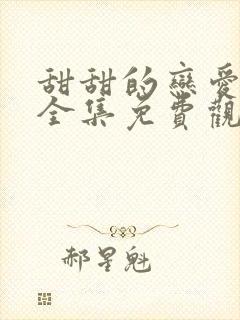 甜甜的戀愛
全集免費觀
郝星魁